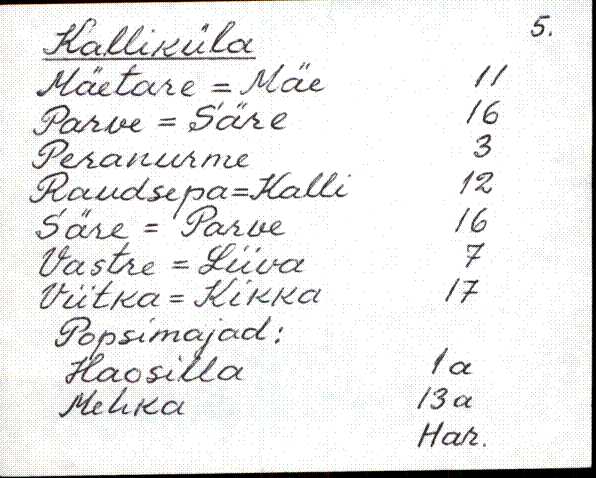 5.
Kalliküla
Mäetare = Mäe 11
Parve = Säre 16
Peranurme 3
Raudsepa = Kalli 12
Säre = Parve 16
Vastre = Liiva 7
Viitka = Kikka 17
Popsimajad:
Haosilla 1a
Mehka 13a
Har.